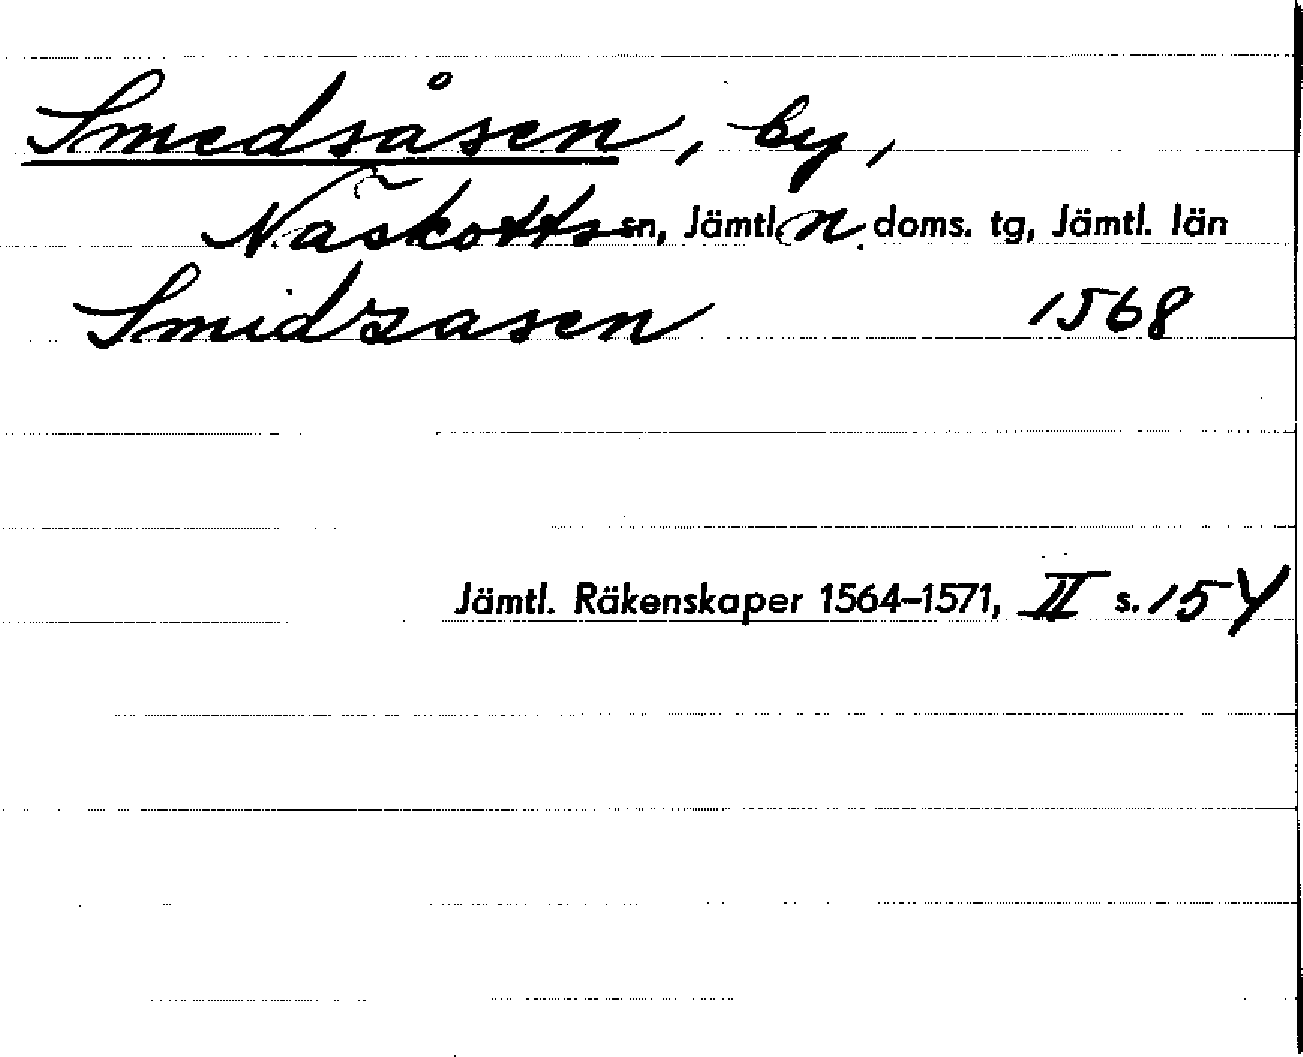 Smedsåsen, by,
Näskotts sn, Jämtl. n. doms. tg, Jämtl. län
Smidzasen 1568
Jämtl. Räkenskaper 1564–1571, II s. 154